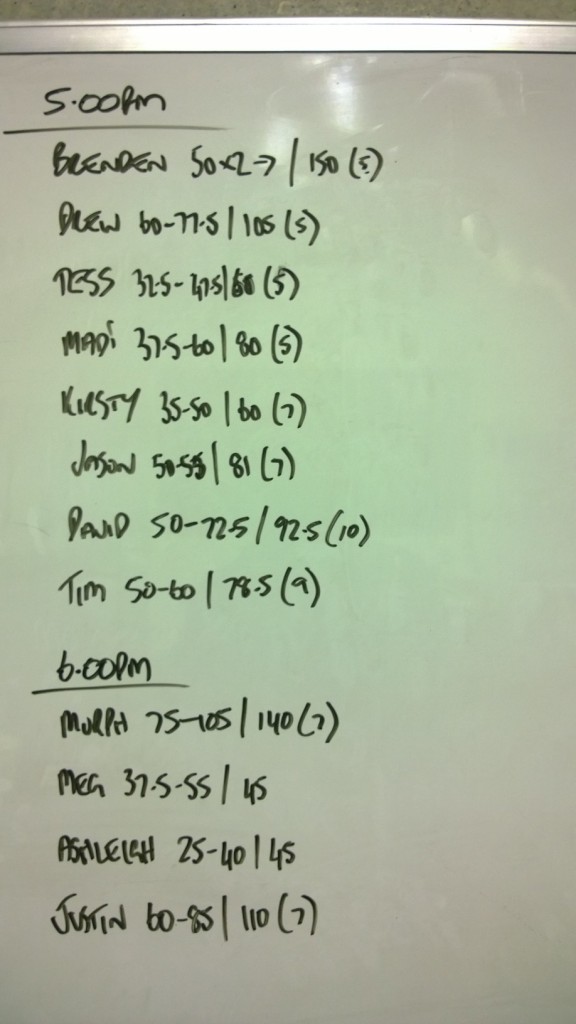 5.00PM
BRENDEN 50x2 → / 150 (5)
DREW 60-77.5 / 105 (5)
TESS 32.5-47.5 / (5)
MADi 37.5-60 / 80 (5)
KIRSTY 35-50 / 60 (7)
JASON 50-55 / 81 (7)
DAVID 50-72.5 / 92.5 (10)
TIM 50-60 / 78.5 (9)
6.00PM
MURPH 75-105 / 140 (7)
MEG 37.5-55 / 45
ASHLEIGH 25-40 / 45
JUSTIN 60-85 / 110 (7)